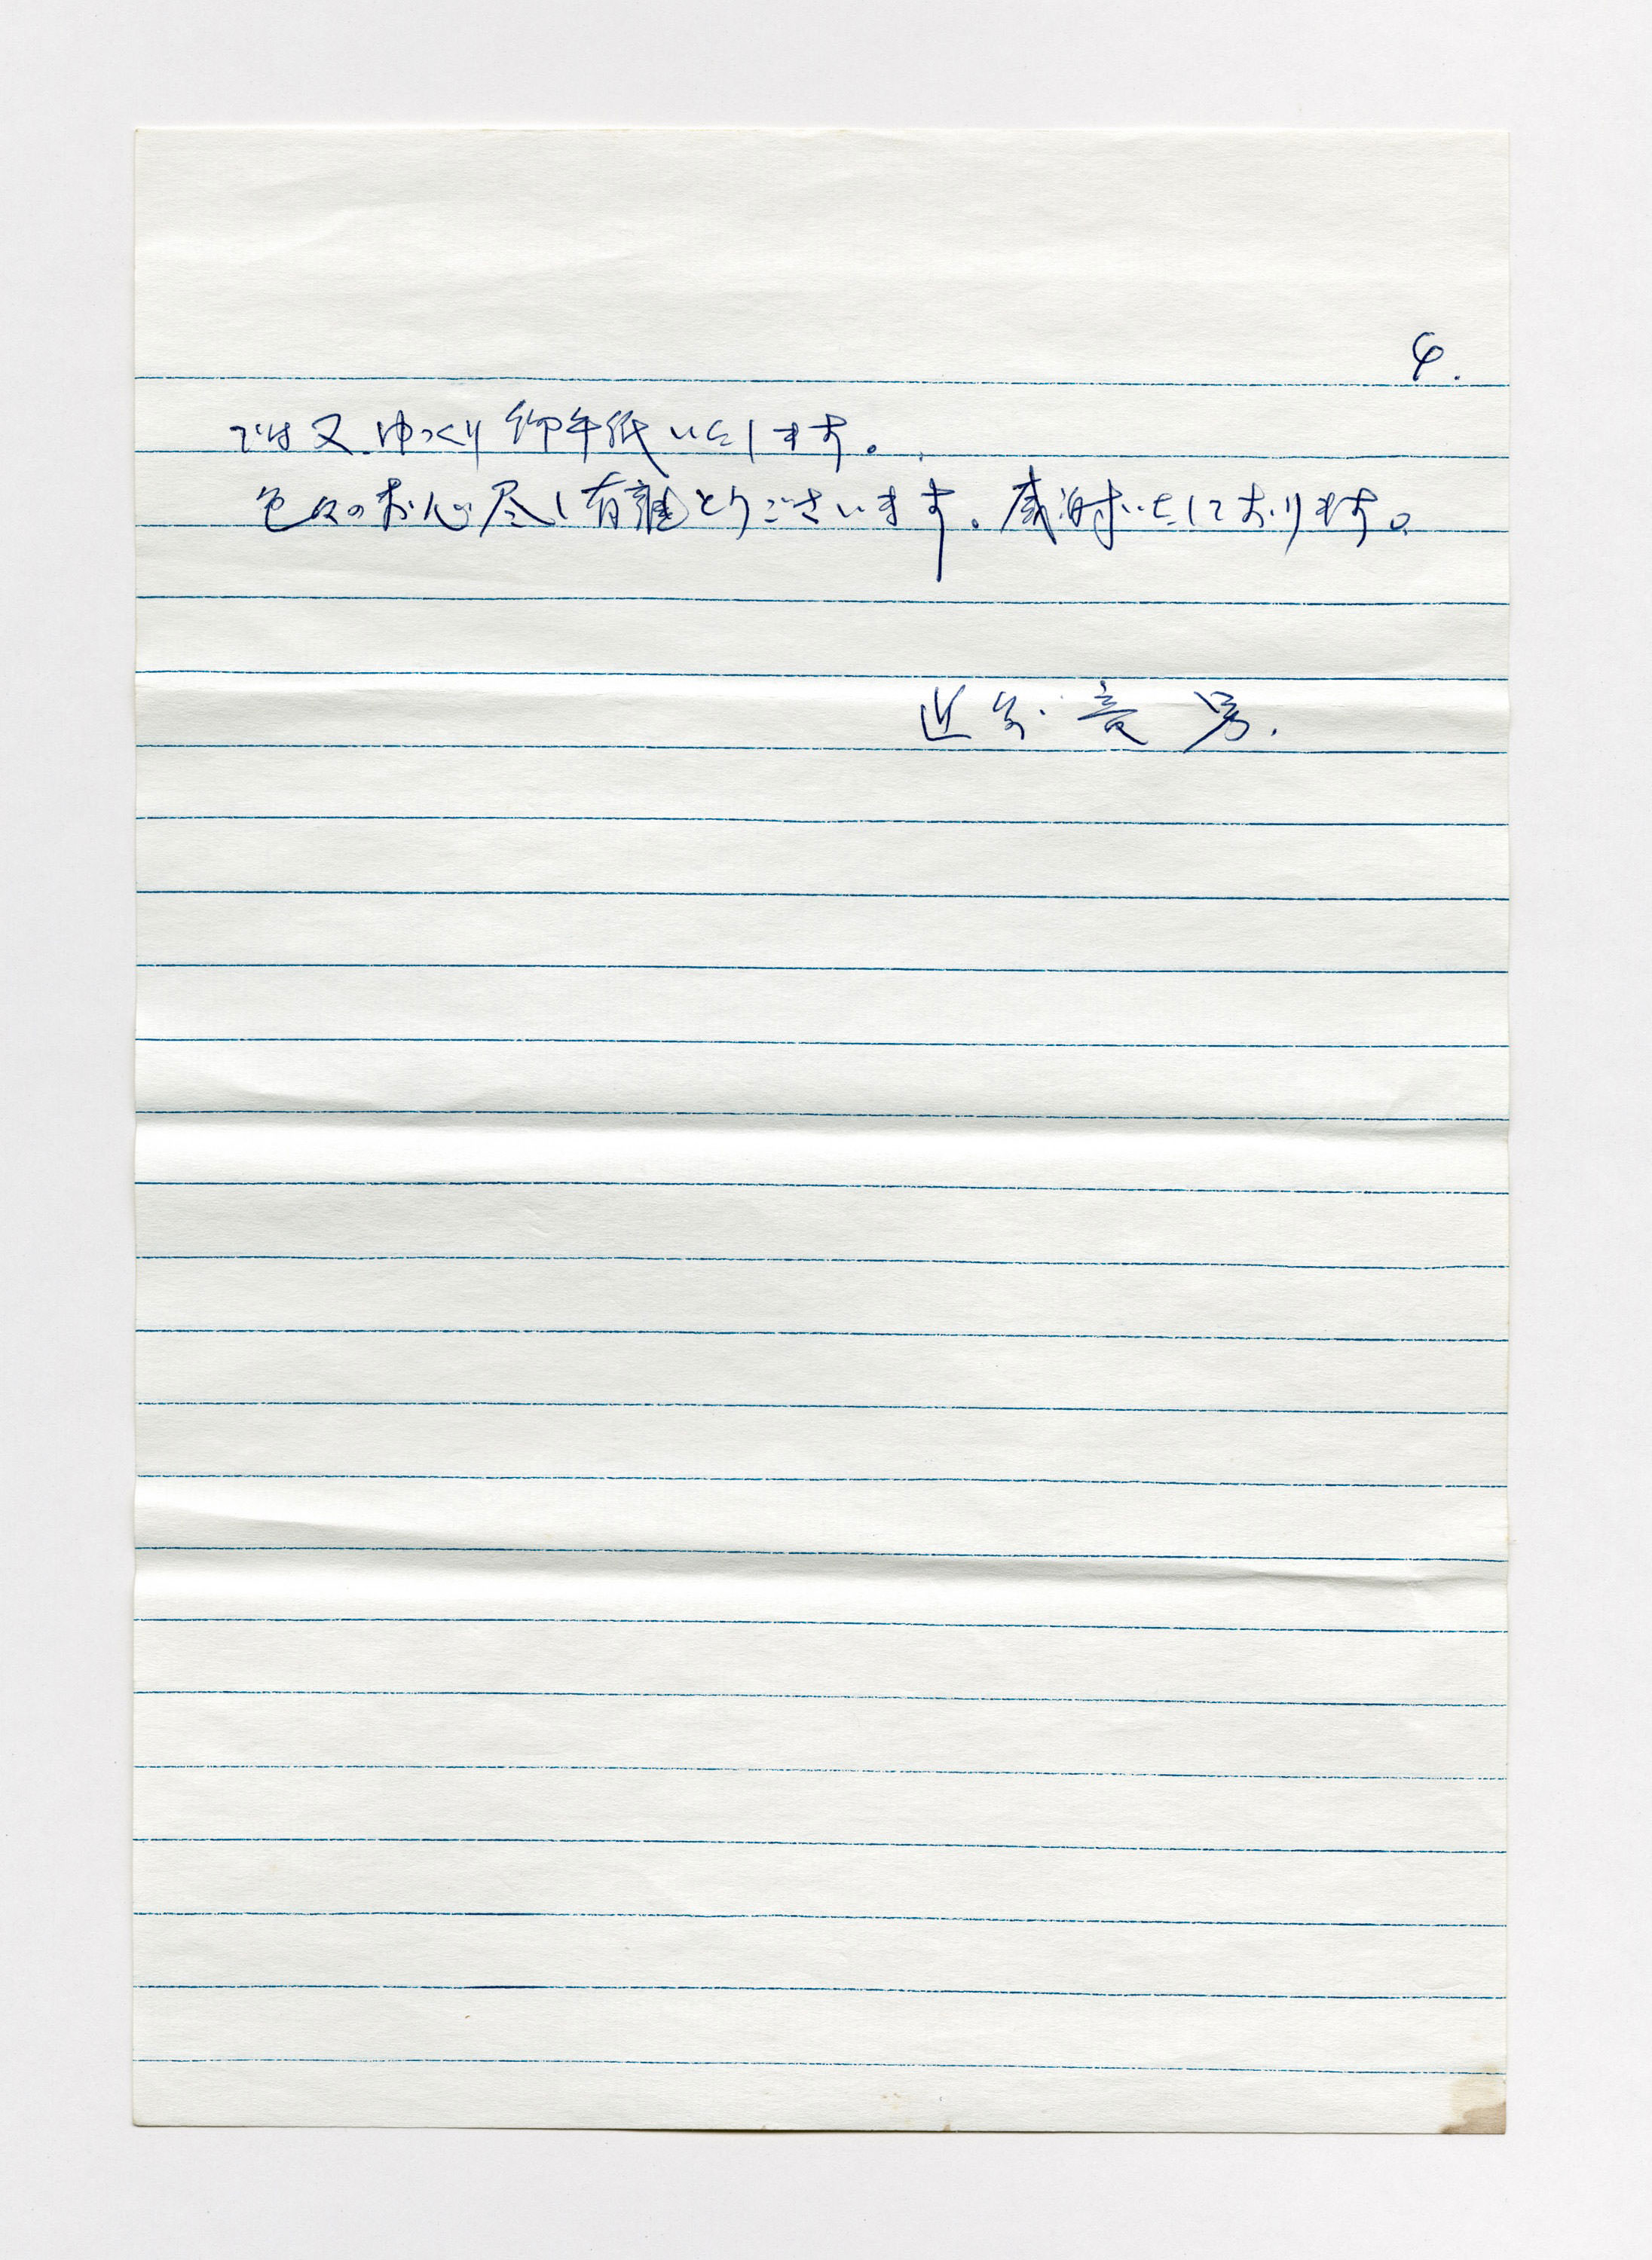 4.
では又ゆっくり御手紙いたします。
色々のお心尽し有難とうございます。感謝いたしております。
近
男.